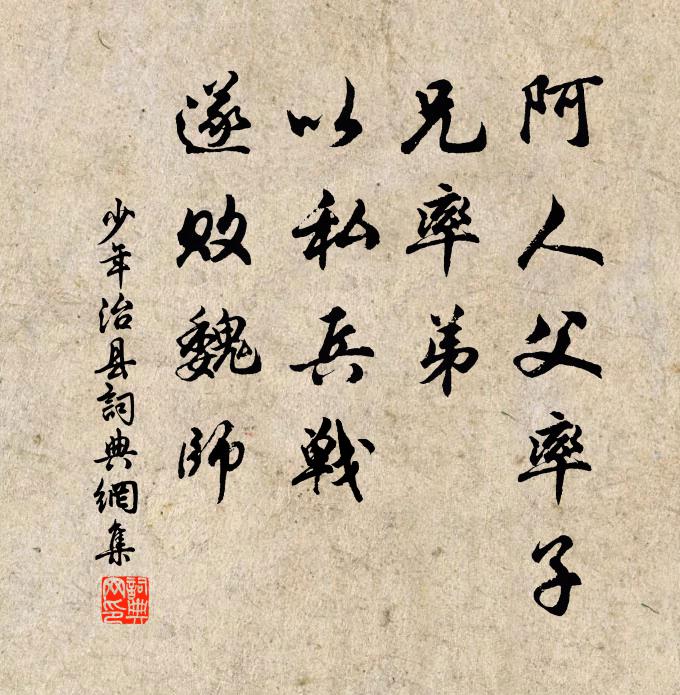 阿人父率子
兄率弟
以私兵戦
遂败魏师
少年治县詞典網集
詞典网印